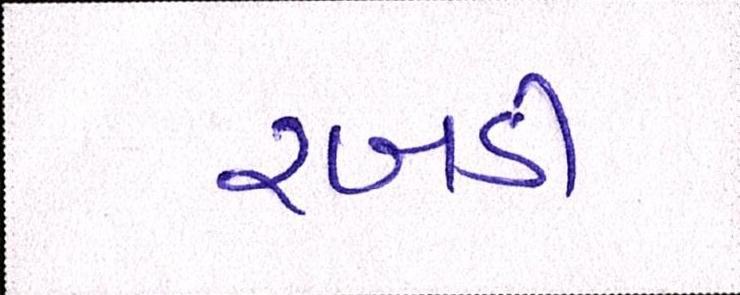 રબડી